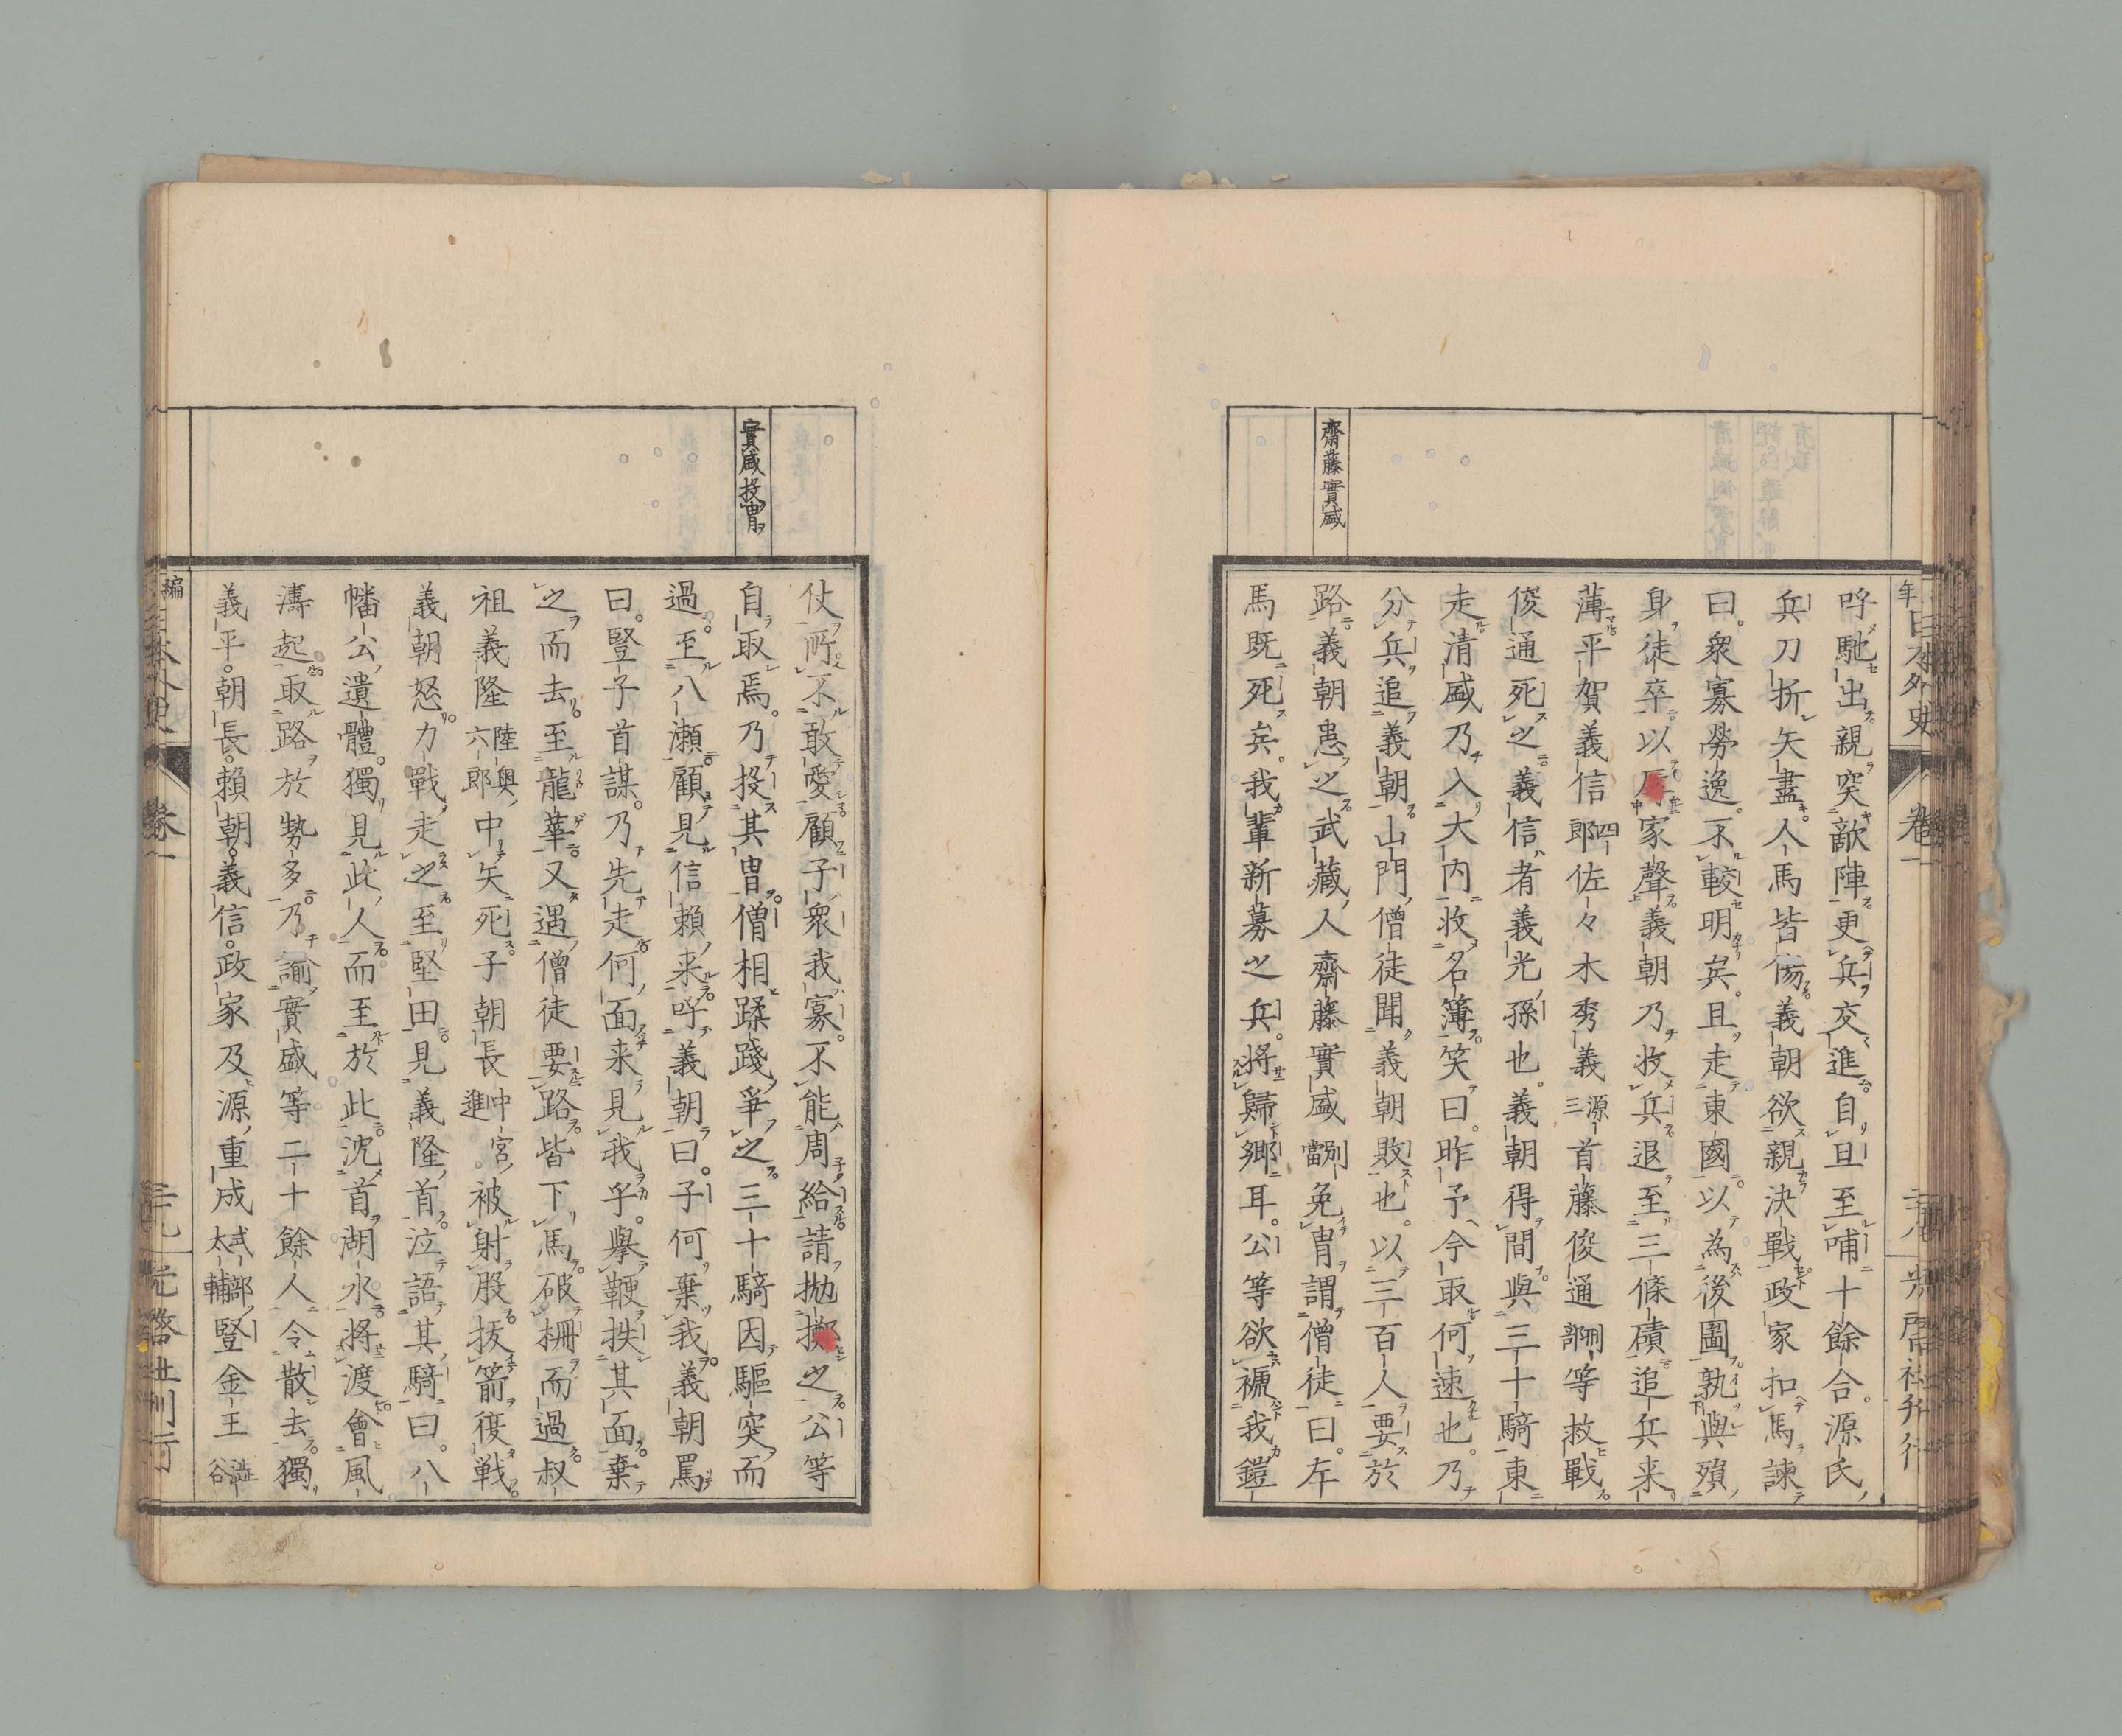 齋藤實盛
呼馳出親突敵陣更兵交進自旦至晡十餘合。源氏
兵刀折矢盡。人馬皆傷義朝欲親決戰政家扣馬諫
曰。衆寡勞逸。不較明矣。且走東國。以為後圖孰與殞
身徒卒以家聲義朝乃收兵退至三條磧追兵来
薄平賀義信四郎佐々木秀義源三首藤俊通刑部等救戰
俊通死之義信者義光孫也。義朝得間與三十騎東
走清盛乃入大内收名簿笑曰。昨予今取何速也。乃
分兵追義朝山門僧徒聞義朝敗也。以三百人要於
路義朝患之武藏人齋藤實盛別當免冑謂僧徒曰。左
馬既死矣。我輩新募之兵。將歸郷耳。公等欲褫我鎧
年日本外史
卷一
實盛投冑
仗所不敢愛顧子衆我寡。不能周給請拋擲之公等
自取焉。乃投其冑僧相蹂踐爭之三十騎因驅突而
過。至八瀬顧見信賴来呼義朝曰。子何棄我義朝罵
曰。豎子首謀。乃先走何面来見我乎。擧鞭抶其面棄
之而去。至龍華又遇僧徒要路皆下馬破柵而過叔
祖義隆陸奥六郎中矢死子朝長中宮進被射股拔箭復戰
義朝怒力戰走之至堅田見義隆首泣語其騎曰。八
幡公遺體。獨見此人而至於此沈首湖水將渡會風
濤起取路於勢多乃諭實盛等二十餘人令散去獨
義平。朝長。賴朝。義信。政家及源重成式部太輔豎金王澁谷
編
卷一